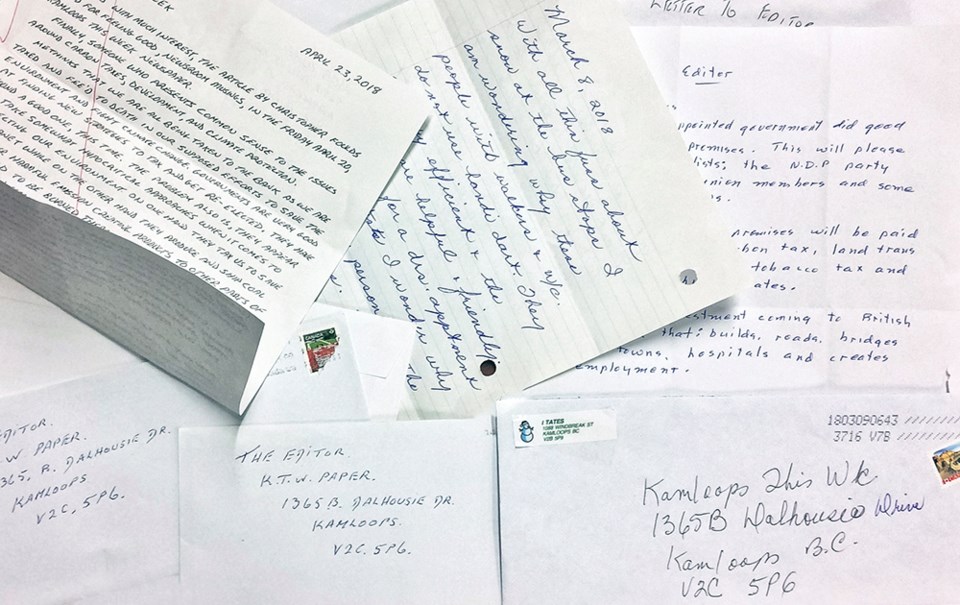 EEK
APRIL 23, 2018
WITH MUCH INTEREST, THE ARTICLE BY CHRISTOPHER FOULDS
FOR FEELING GOOD, NEWSROOM MUSINGS, IN THE FRIDAY APRIL 20,
KAMLOOPS THIS WEEK NEWSPAPER.
FINALLY, SOMEONE WHO PRESENTS COMMON SENSE TO THE ISSUES
AROUND CARBON TAXES, DEVELOPMENT AND CLIMATE PROTECTION.
METHINKS THAT WE ARE ALL BEING TAKEN TO THE BANK AS WE ARE
TAXED AND FEE'D TO DEATH IN OUR SUPPOSED EFFORTS TO SAVE THE
ENVIRONMENT AND FIGHT CLIMATE CHANGE. GOVERNMENTS ARE VERY GOOD
AT FINDING NEW THINGS TO TAX AND GET RE-ELECTED. THEY HAVE
A GOOD ONE, THIS TIME. THE PROBLEM ALSO IS, THEY APPEAR
TAKE SOMEWHAT HYPOCRITICAL APPROACHES WHEN IT COMES TO
OUR ENVIRONMENT. ON ONE HAND THEY TAX US TO SAVE
IT WHILE ON THE OTHER HAND THEY PRODUCE AND SHIP COAL
HARMFUL EMISSION CREATING PRODUCTS TO OTHER PARTS OF
TO BE BURNED THERE
March 8, 2018
With all this fuss about
snow at the bus stops I
am wondering why these
people with walkers & w/c.
do not use handi dart. They
efficient & the
are helpful & friendly.
for a drs. appointment
I wonder why
the
person
LETTER TO EDITOR
Editor
ppointed government did good
promises. This will please
lists; the N.D.P party
nion members and some
s.
promises will be paid
bon tax, land trans
tobacco tax and
ates.
estment coming to British
that; builds, roads, bridges
towns, hospitals and creates
employment.
EDITOR.
.W. PAPER.
365, B. DALHOUSIE DR.
KAMLOOPS
V2C, 5P6.
THE EDITOR
K.T.W. PAPER.
1365 B. DALHOUSIE DR.
KAMLOOPS.
V2C. 5P6.
I TATES
WINDBREAK ST
KAMLOOPS BC
V2B 5P9
1803090643
3716 V7B
Kamloops This Wk
1365B Dalhousie Drive
Kamloops B.C.
V2C 5P6